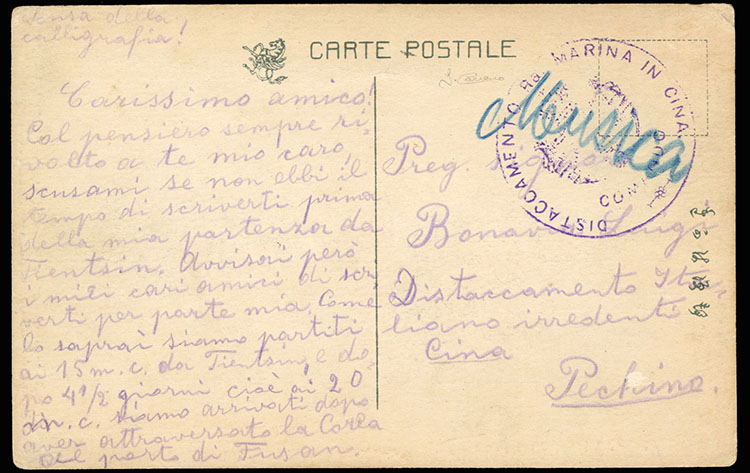 scusa della
calligrafia!
CARTE POSTALE
Carissimo amico!
Col pensiero sempre ri-
volto a te mio caro,
scusami se non ebbi il
tempo di scriverti prima
della mia partenza da
Tientsin. Avvisai però
i miei cari amici di scri
verti per parte mia. Come
lo saprai siamo partiti
ai 15 m.c. da Tientsin, e do-
po 4 1/2 giorni cioè ai 20
m.c. siamo arrivati dopo
aver attraversato la Corea
nel porto di Fusan.
DISTACCAMENTO Ra MARINA IN CINA
COMANDO
Musica
Preg. signor
Bonavia Luigi
Distaccamento Ita-
liano irredenti
Cina
Pechino.